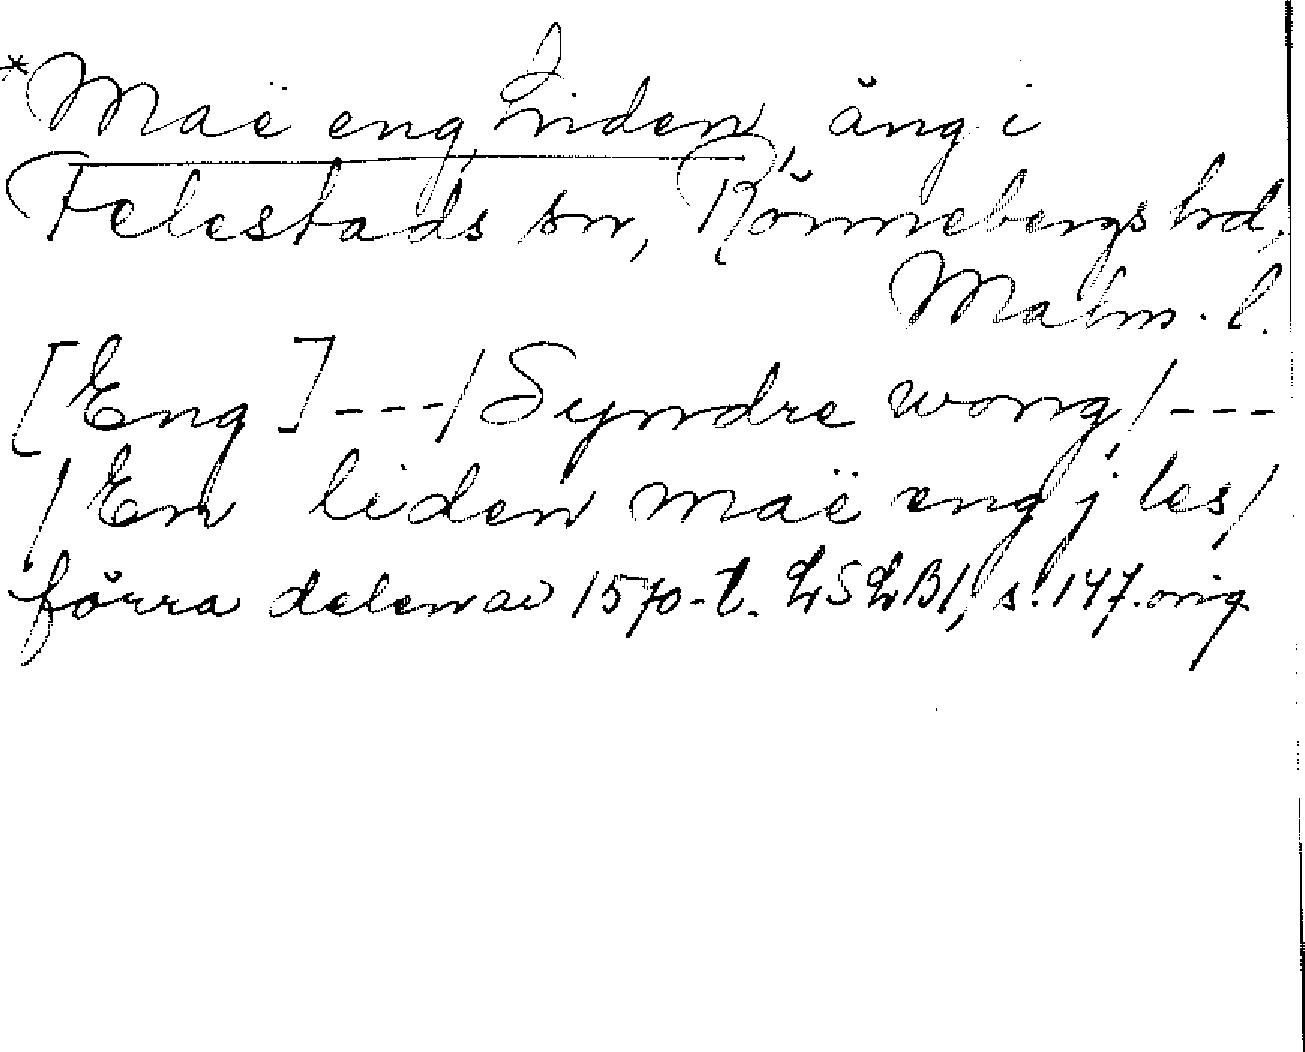 *Maë eng, Liden, äng i
Felestads sn, Rönnebergs hd,
Malm. l.
[Eng] ---/ Syndre wong, / ---
/ En liden maë eng j les /
förra delen av 1570-t. LSLB 1, s. 147. orig